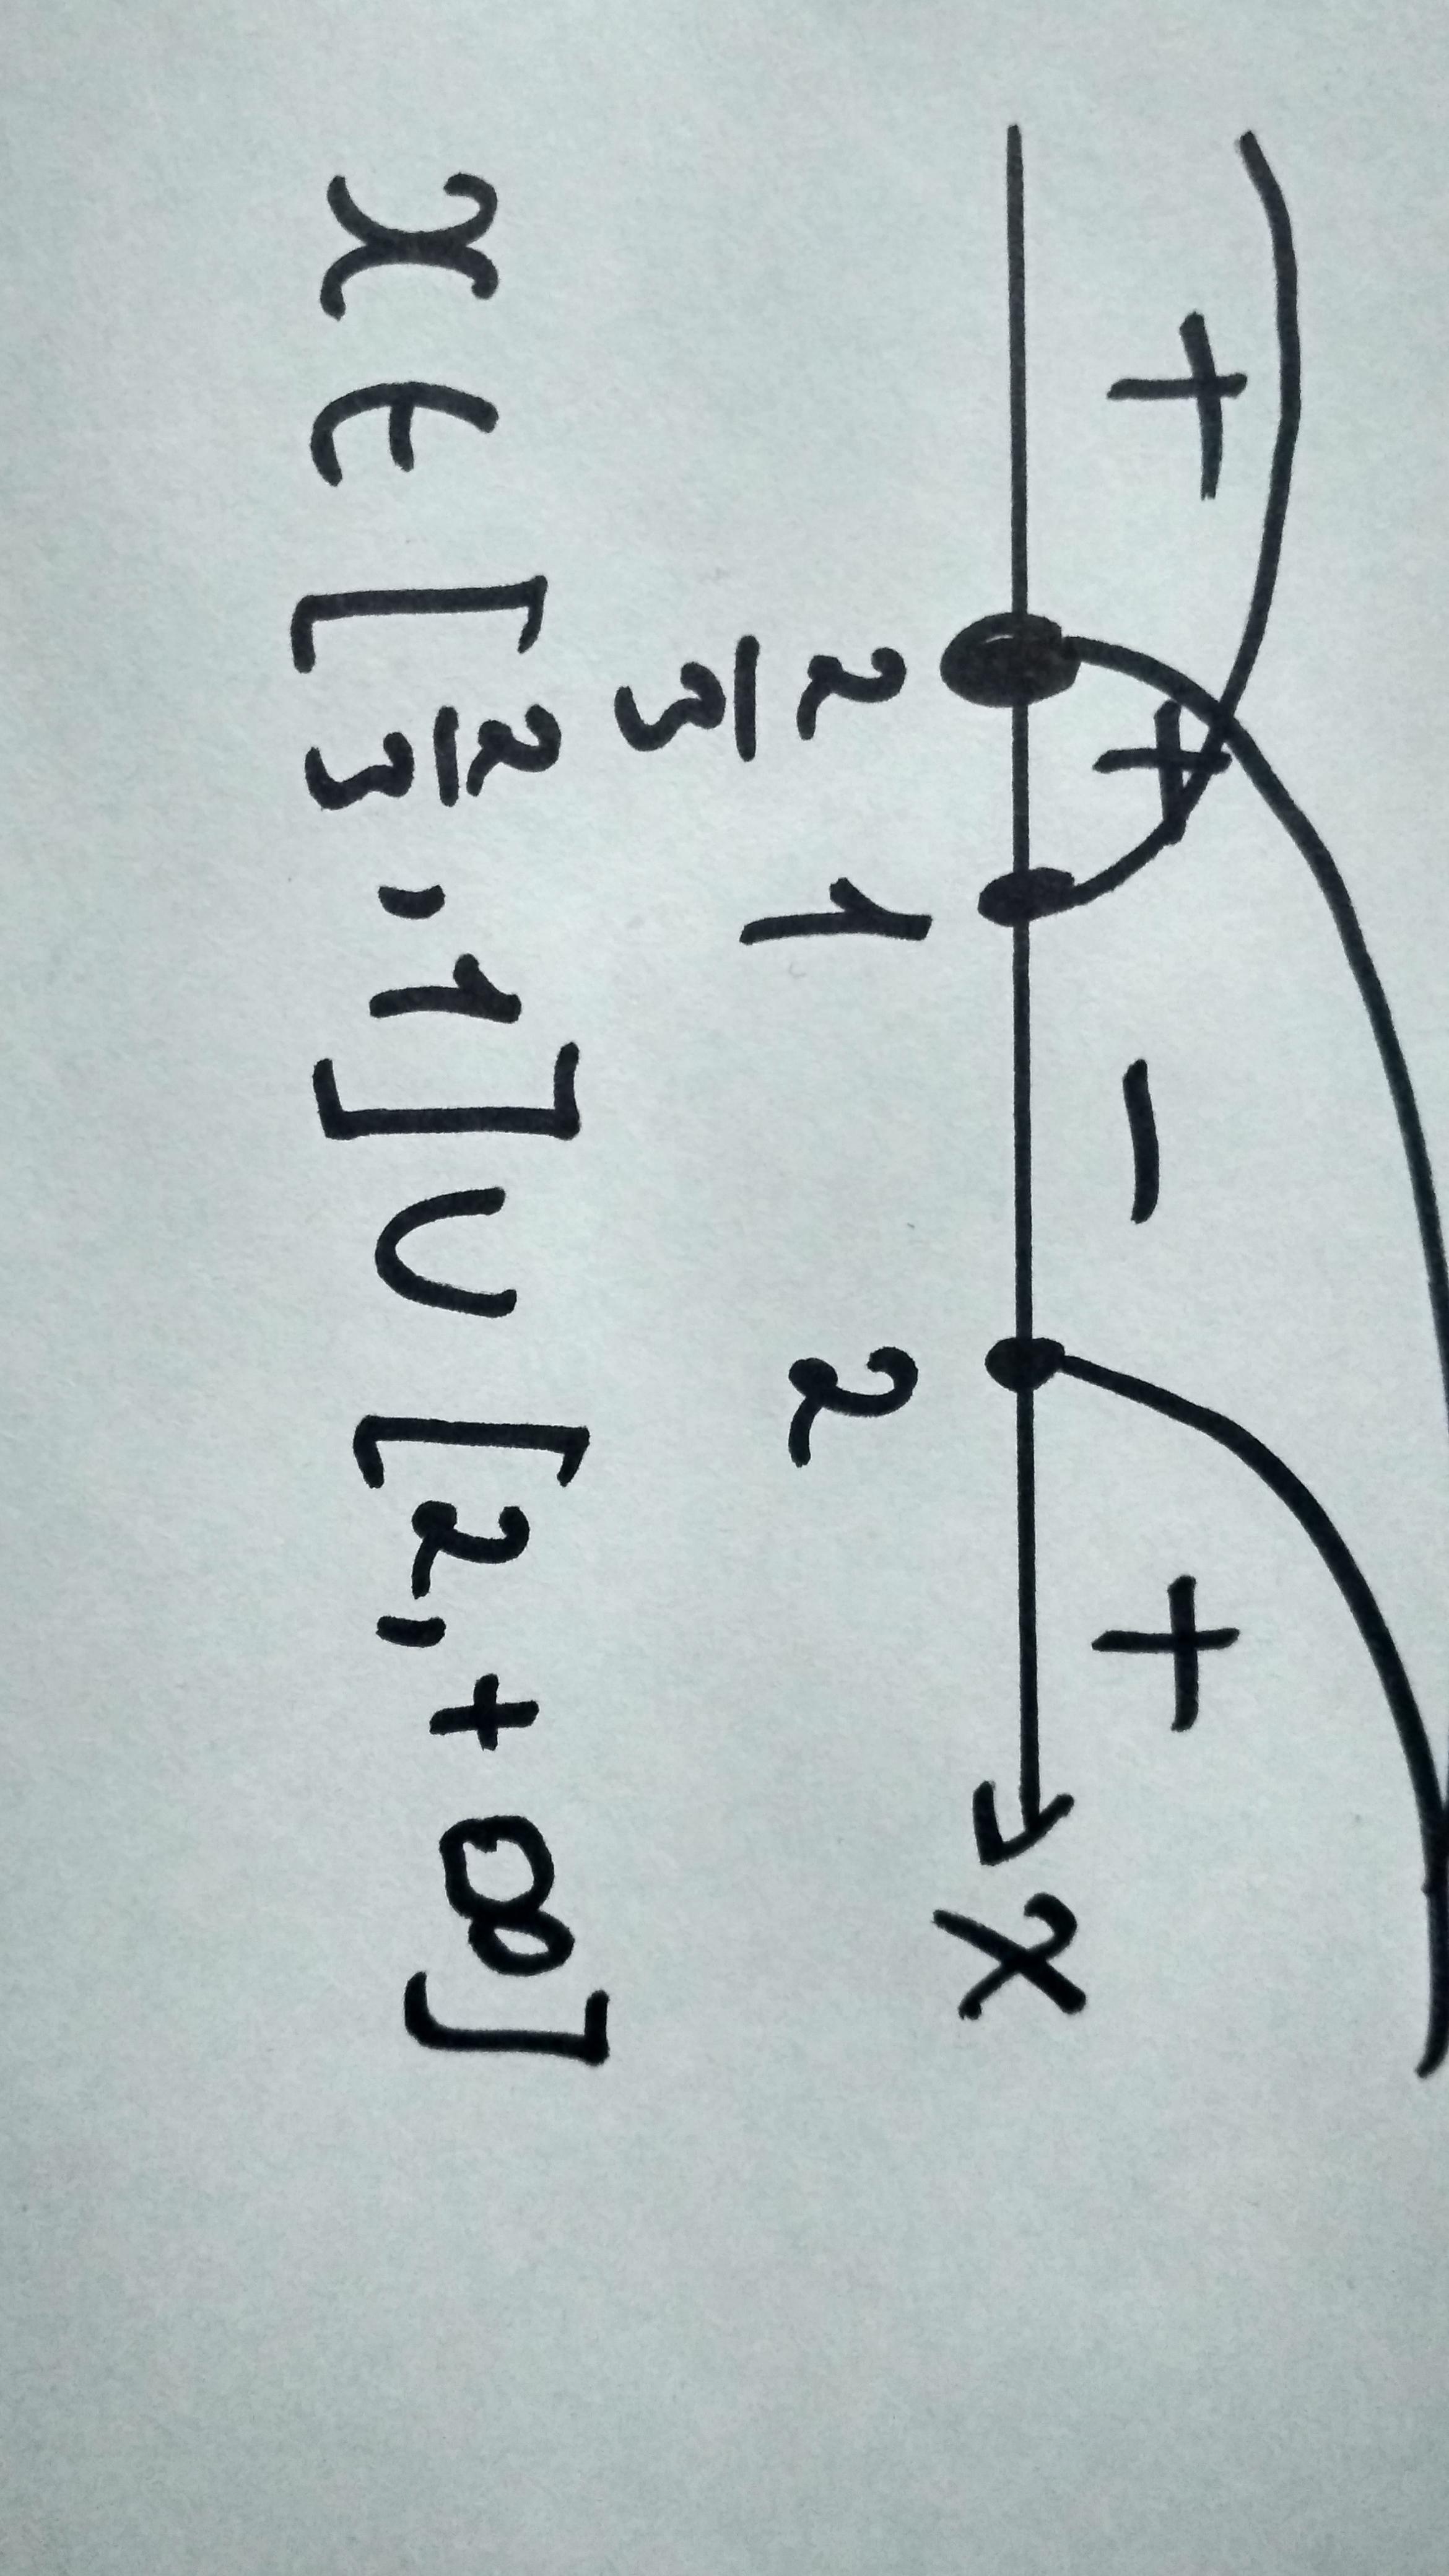 + + - +
2/3 1 2 x
x ∈ [2/3, 1] ∪ [2, +∞]